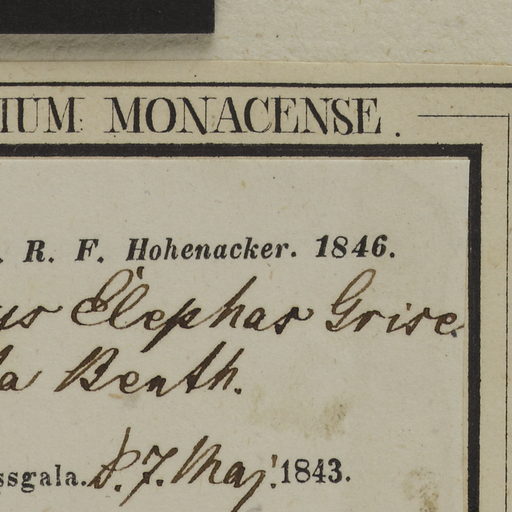 IUM MONACENSE.
. R. F. Hohenacker. 1846.
us Elephas Grise.
la Benth.
ssgala. D. 7. Maj. 1843.